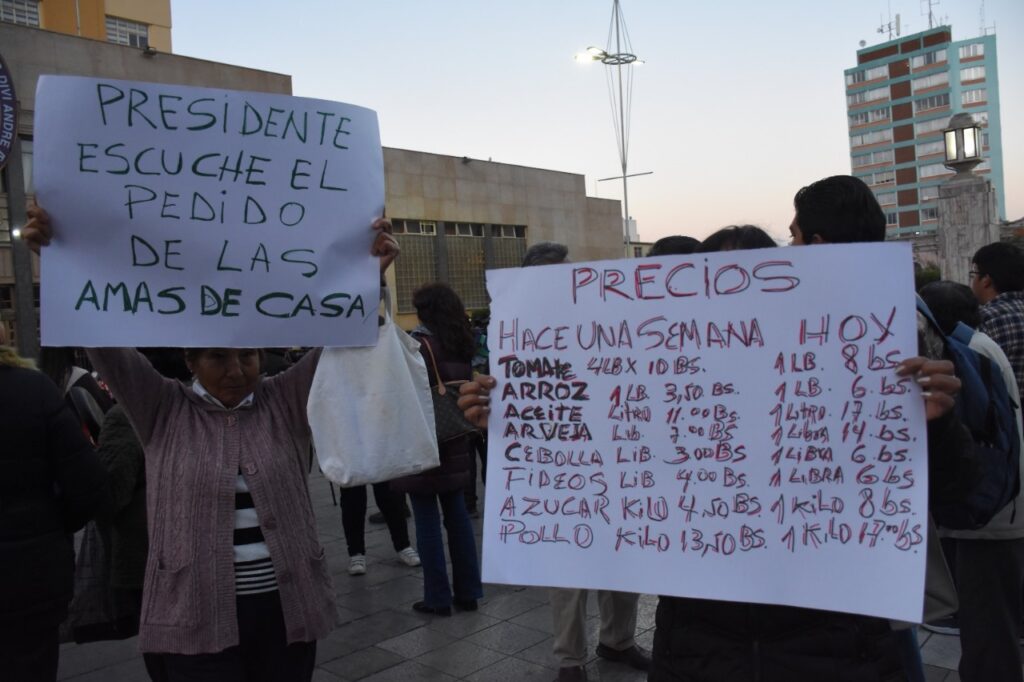 PRESIDENTE
ESCUCHE EL
PEDIDO
DE LAS
AMAS DE CASA
PRECIOS
HACE UNA SEMANA HOY
TOMATE 4LB X 10 BS. 1 LB. 8 bs.
ARROZ 1 LB. 3,50 BS. 1 LB. 6 bs.
ACEITE LITRO 11.00 BS. 1 LITRO. 17. bs.
ARVEJA LIB. 7.00 BS. 1 LIBRA 14. bs.
CEBOLLA LIB. 3.00 BS 1 LIBRA 6. bs.
FIDEOS LIB 4.00 BS. 1 LIBRA 6 bs.
AZUCAR KILO 4,50 BS. 1 KILO 8 bs.
POLLO KILO 13,50 BS. 1 KILO 17.00 bs.
DIVI ANDRE